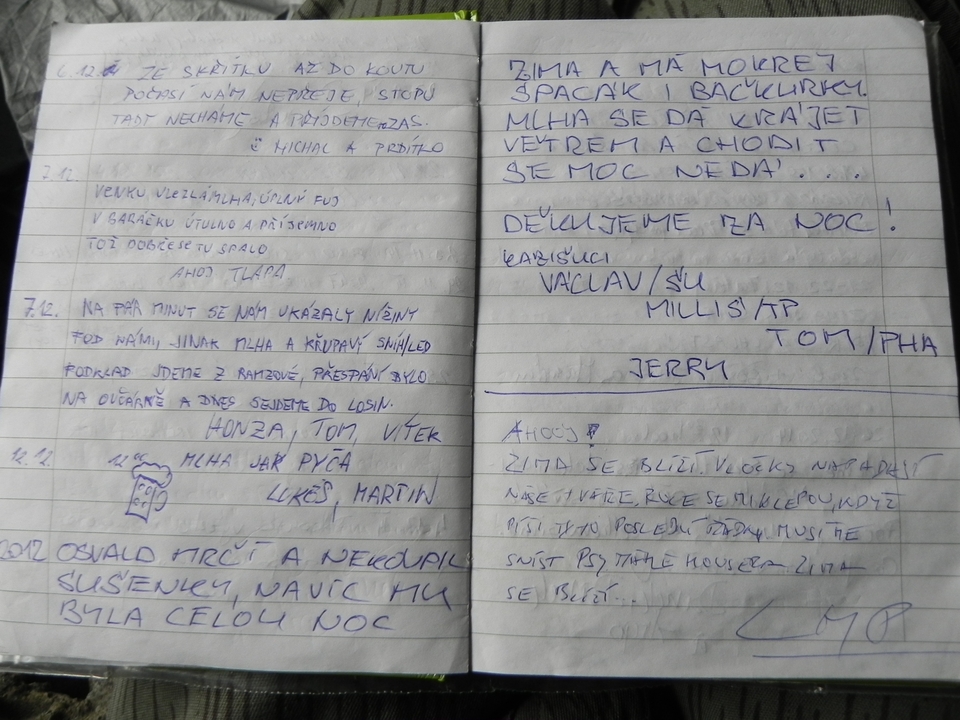 6.12. ZE SKŘÍTKU AŽ DO KOUTU
POČASÍ NÁM NEPŘEJE, STOPU
TADY NECHÁME A PŘIJDEME ZAS.
MICHAL A PRDÍTKO
7.12.
VENKU VLEZLÁ MLHA, ÚPLNÝ FUJ
V BARÁČKU ÚTULNO A PŘÍJEMNO
TOŽ DOBŘE SE TU SPALO
AHOJ TLAPA
7.12. NA PÁR MINUT SE NÁM UKÁZALY NÍŽINY
POD NÁMI, JINAK MLHA A KŘUPAVÍ SNÍH/LED
PODKLAD JDEME Z RAMZOVÉ, PŘESPÁNÍ BYLO
NA OVČÁRNĚ A DNES SEJDEME DO LOSIN.
HONZA, TOM, VÍTEK
12.12. MLHA JAK PYČA
LUKEŠ, MARTIN
2012 OSVALD MRČÍ A NEKOUPIL
SUŠENKY, NAVÍC MU
BYLA CELOU NOC
ZIMA A MÁ MOKREJ
SPACÁK I BAČKURKY.
MLHA SE DÁ KRÁJET
VĚTREM A CHODIT
SE MOC NEDÁ...
DĚKUJEME ZA NOC!
VÁCLAV/SU
MILLIS/TP
TOM/PHA
JERRY
AHOOJ
ZIMA SE BLÍŽÍ, VLOČKY NAPADAJÍ
NAŠE TVÁŘE, RUCE SE MI KLEPOU, KDYŽ
PÍŠI TYTO POSLEDNÍ ŘÁDKY, MUSÍME
SNÍST PSY ZIMA
SE BLÍŽÍ...